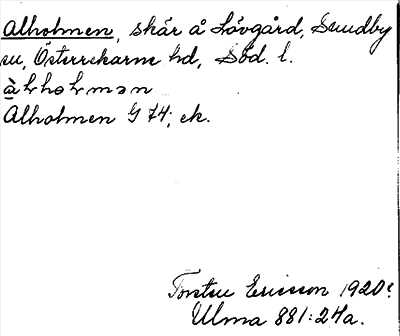 Alholmen, skär å Lövgård, Sundby
sn, Österrekarne hd, Söd. l.
àlholmən
Alholmen G 74; ek.
Torsten Ericsson 1920?
Ulma 881:24a.